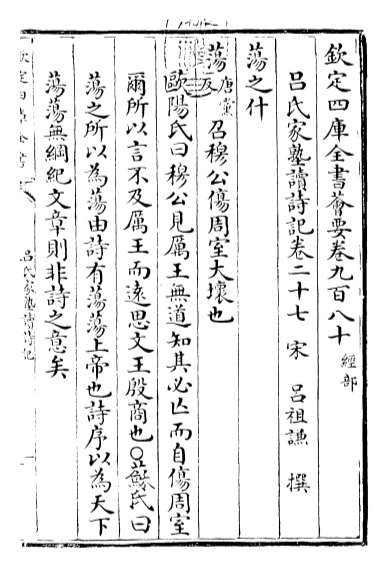 欽定四庫全書薈要卷九百八十 經部
呂氏家塾讀詩記卷二十七 宋 呂祖謙 撰
蕩之什
蕩唐黨反 召穆公傷周室大壞也
歐陽氏曰穆公見厲王無道知其必亾而自傷周室
爾所以言不及厲王而遠思文王殷商也○蘇氏曰
蕩之所以為蕩由詩有蕩蕩上帝也詩序以為天下
蕩蕩無綱紀文章則非詩之意矣
欽定四庫全書
呂氏家塾讀詩記
一